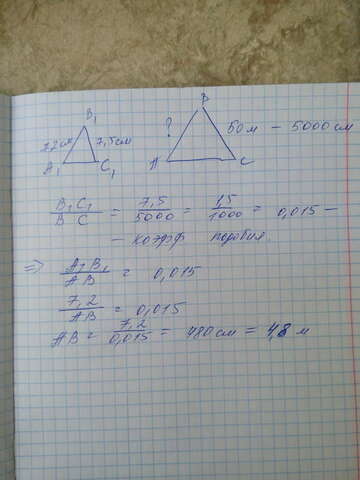 B₁
B
7,2см 7,5см ? 50м – 5000 см
A₁ C₁ A C
B₁C₁/BC = 7,5/5000 = 15/1000 = 0,015 —
— коэфф подобия.
=> A₁B₁/AB = 0,015
7,2/AB = 0,015
AB = 7,2/0,015 = 480 см = 4,8 м